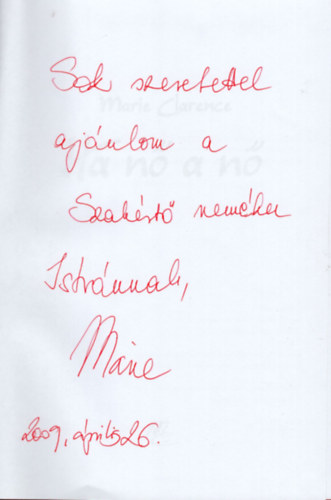 Sok szeretettel
Marie Clarence
ajánlom a
nő a nő
Szakértő
Istvánnak,
Marie
2009. április 26.